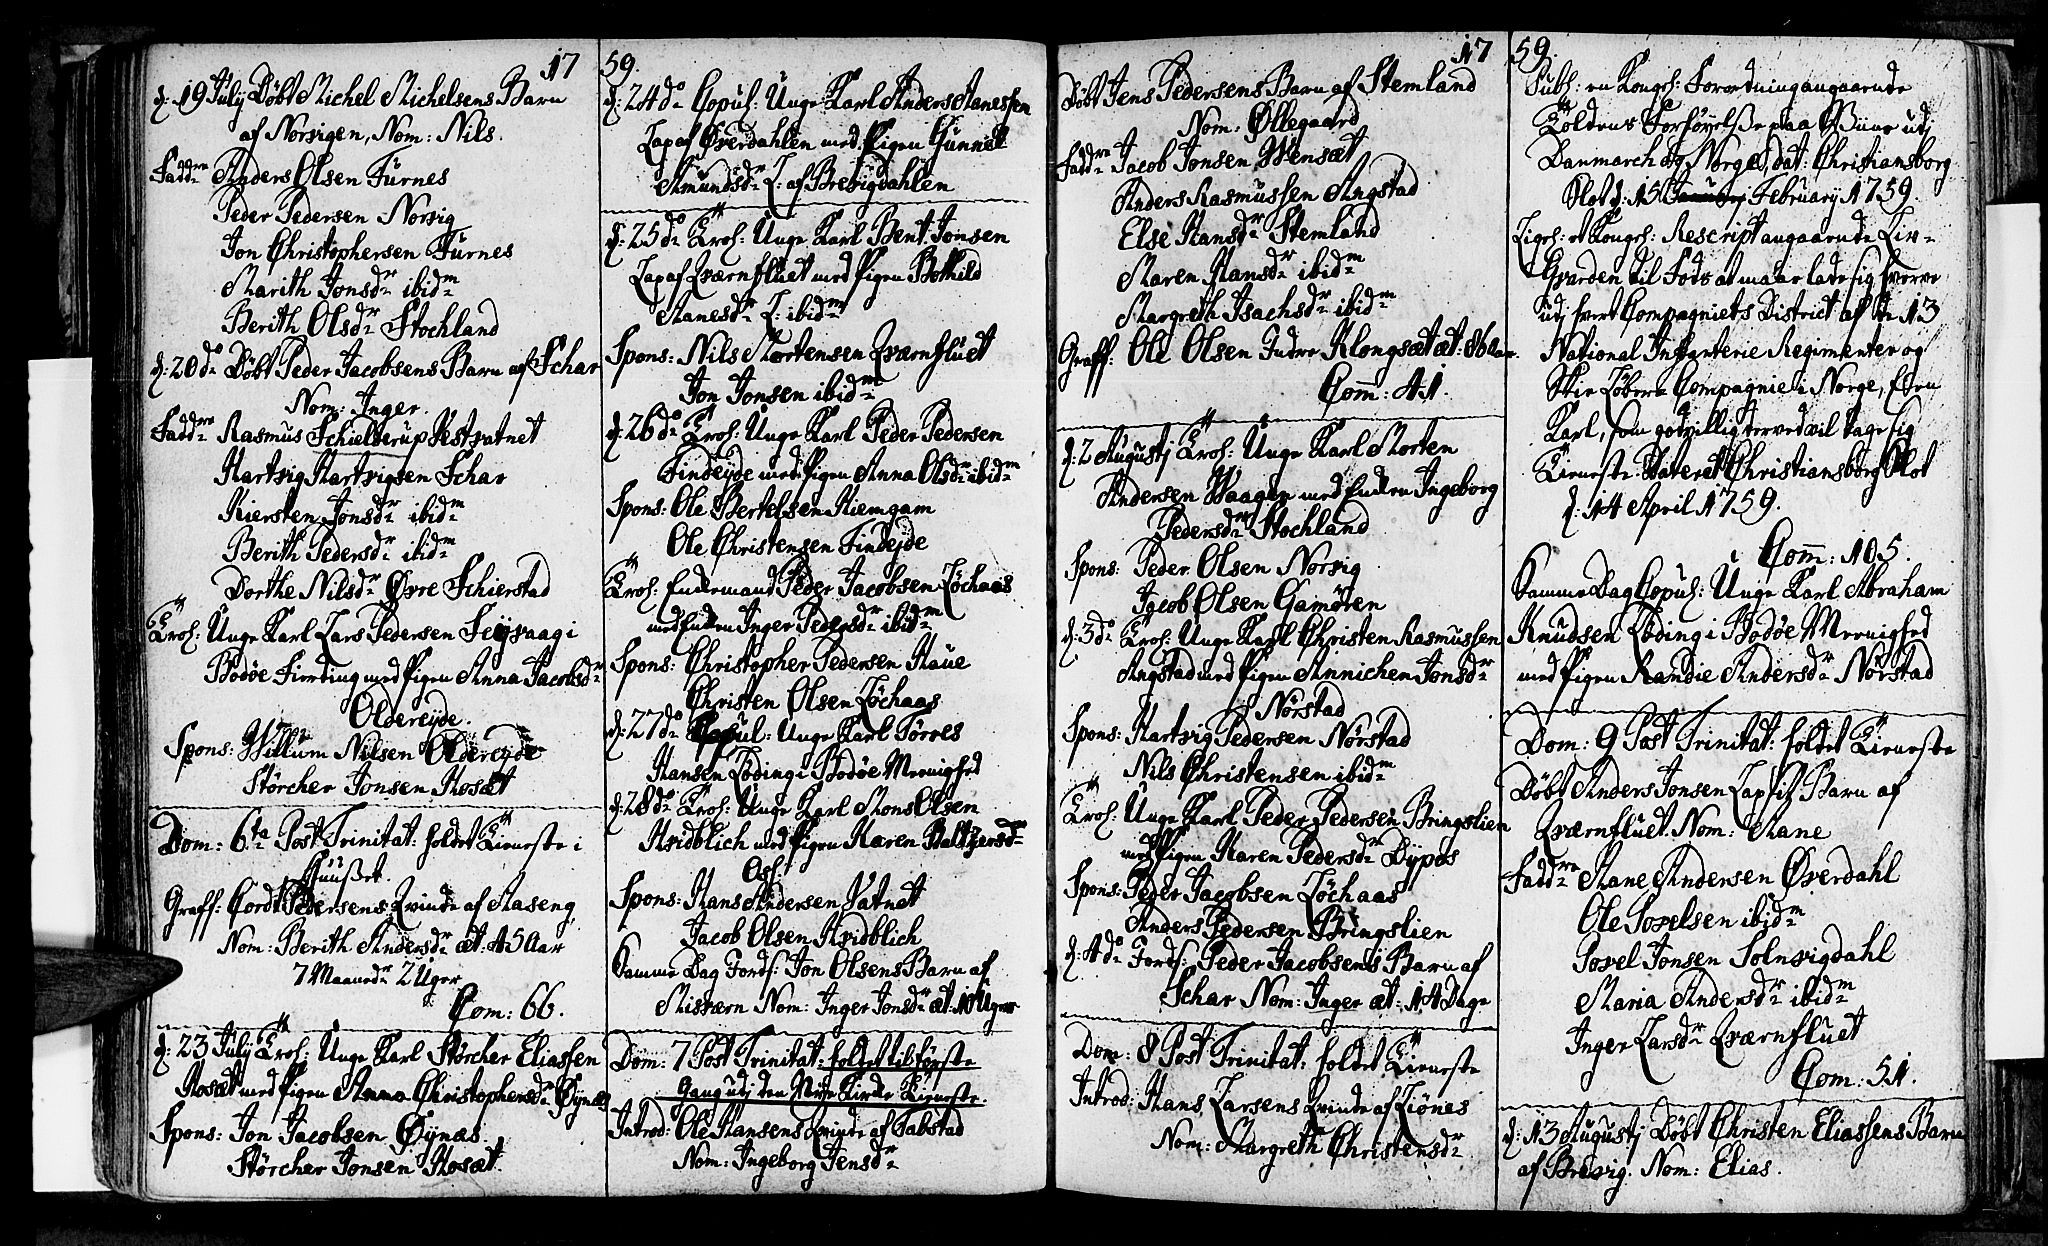 17
d: 19 July Døbt Michel Michelsens Barn
af Norvigen, Nom: Nils.
Faddre Anders Olsen Furnes
Peder Pedersen Norvig
Jon Christophersen Furnes
Marith Jonsdr ibidm
Berith Olsdr Stochland
d: 20do Døbt Peder Jacobsens Barn af Schar
Nom: Inger.
Faddre Rasmus Schielderup Vestvatnet
Hartvig Hartvigsen Schar
Kiersten Jonsdr ibidm
Berith Pedersdr ibidm
Dorthe Nilsdr Øvre Schierstad
Trol: Unge Karl Lars Pedersen Seyvaag i
Bodøe Fierding med Pigen Anna Jacobsdr
Oldereyde.
Spons: Willum Nilsen Oldereyde
Størcher Jonsen Hosæt
Dom: 6ta Post Trinitat: holdet Tieneste i
Huuset.
Graff: Cordt Pedersens Qvinde af Aaseng
Nom: Berith Andersdr æt: 45 Aar
7 Maanedr 2 Uger
Com: 66.
d: 23 July Trol: Unge Karl Størcher Eliassen
Hosæt med Pigen Anna Christophersdr Øynæs
Spons: Jon Jacobsen Øynæs
Størcher Jonsen Hosæt.
59.
d: 24do Copul: Unge Karl Anders Aanessen
Lap af Øverdahlen med Pigen Gunnil
Amundsdr L: af Brevigdahlen
d: 25do Trol: Unge Karl Bent Jonsen
Lap af Qværnfluet med Pigen Bothild
Aanesdr L: ibidm
Spons: Nils Mortensen Qværnfluet
Jon Jonsen ibidm
d: 26do Trol: Unge Karl Peder Pedersen
Findejde med Pigen Anna Olsdr ibidm
Spons: Ole Bertelsen Kiemgam
Ole Christensen Findejde
Trol: Enckemand Peder Jacobsen Løchaas
med Enken Inger Pedersdr ibidm
Spons: Christopher Pedersen Haue
Christen Olsen Løchaas
d: 27do Copul: Unge Karl Tørres
Hansen Løding i Bodøe Menighed
d: 28do Trol: Unge Karl Mons Olsen
Hvidblich med Pigen Karen Baltzersdr
Os:
Spons: Hans Andersen Vatnet
Jacob Olsen Hvidblich
Samme Dag Jords: Jon Olsens Barn af
Misværn Nom: Inger Jonsdr æt: 10 Uger
Dom: 7 Post Trinitat: holdet til første
Gang udj den Nye Kirke Tieneste.
Introd: Ole Hansens Qvinde af Tabstad
Nom: Ingeborg Jensdr
17
Døbt Jens Pedersens Barn af Stemland
Nom: Øllegaard
Faddre Jacob Jonsen Wensæt
Anders Rasmussen Angstad
Else Hansdr Stemland
Maren Hansdr ibidm
Margreth Isachsdr ibidm
Graff: Ole Olsen Indre Klongsæt æt: 86 Aar
Com: 41.
d: 2 Augustj Trol: Unge Karl Morten
Andersen Waagen med Enken Ingeborg
Pedersdr Stochland
Spons: Peder Olsen Norvig
Jacob Olsen Gamøren
d: 3do Trol: Unge Karl Christen Rasmussen
Angstad med Pigen Annichen Jonsdr
Nørstad
Spons: Hartvig Pedersen Nørstad
Nils Christensen ibidm
Trol: Unge Karl Peder Pedersen Bringslien
med Pigen Karen Pedersdr Dypos
Spons: Peder Jacobsen Løchaas
Anders Pedersen Bringslien
d: 4do Jords: Peder Jacobsens Barn af
Schar Nom: Inger æt: 14 Dage
Dom: 8 Post Trinitat: holdet Tieneste
Introd: Hans Larsens Qvinde af Liønes
Nom: Margreth Christensdr
59.
Publ: en Kongel: Forordning angaaende
Toldens Forhøyelse paa Wiine udj
Danmarch og Norge, dat: Christiansborg
Slot d: 15 February 1759.
Ligel: et Kongel: Rescript angaaende Liv-
Guarden til Fods at maae lade sig hverve
udj hvert Compagniets District af de 13
National Infanterie Regimenter og
Skie Løbere Compagnie i Norge, een
Karl, som godvillig derved vil tage sig
Tieneste. Dateret Christiansborg Slot
d: 14 April 1759.
Com: 105.
Samme Dag Copul: Unge Karl Abraham
Knudsen Løding i Bodøe Menighed
med Pigen Randie Andersdr Nørstad
Dom: 9 Post Trinitat: holdet Tieneste
Døbt Anders Jonsen Lap hs Barn af
Qværnfluet. Nom: Aane
Faddre Aane Andersen Øverdahl
Ole Povelsen ibidm
Povel Jonsen Solnvigdahl
Maria Andersdr ibidm
Inger Larsdr Qværnfluet
Com: 51.
d: 13 Augustj Døbt Christen Eliassens Barn
af Brevig. Nom: Elias.